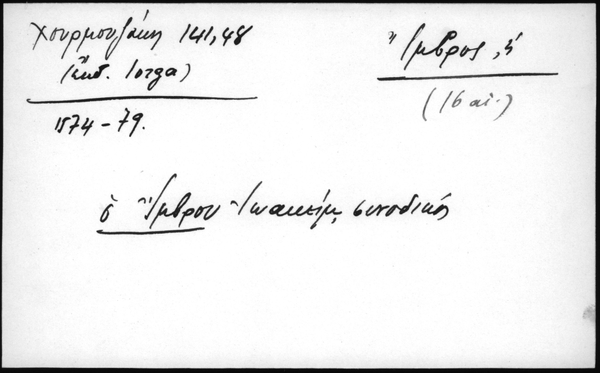 Χουρμουζάκη 141, 48
(ἔκδ. Iorga)
1574-79.
Ἴμβρος, ἡ
(16 αἰ.)
ὁ Ἴμβρου Ἰωακείμ, συνοδικός